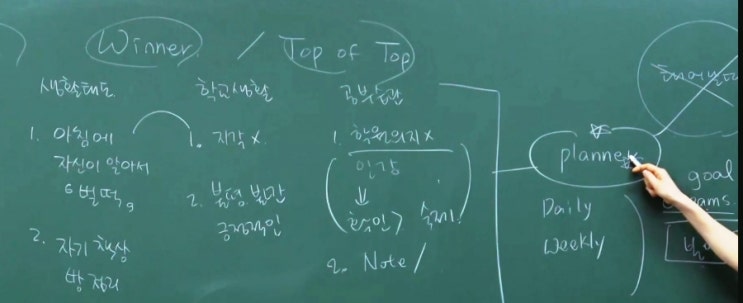 Winner / Top of Top
생활태도
1. 아침에
자신이 알아서
벌떡
2. 자기 책상
방 정리
학교생활
1. 지각 x
2.
긍정적인
공부습관
1. 학원의지 x
인강
↓
확인 > 숙제!
2. Note /
planner
Daily
Weekly
goal